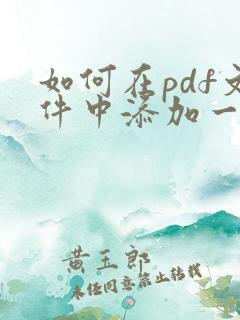 如何在pdf文
件中添加一
黄玉郎
未经同意禁止转载